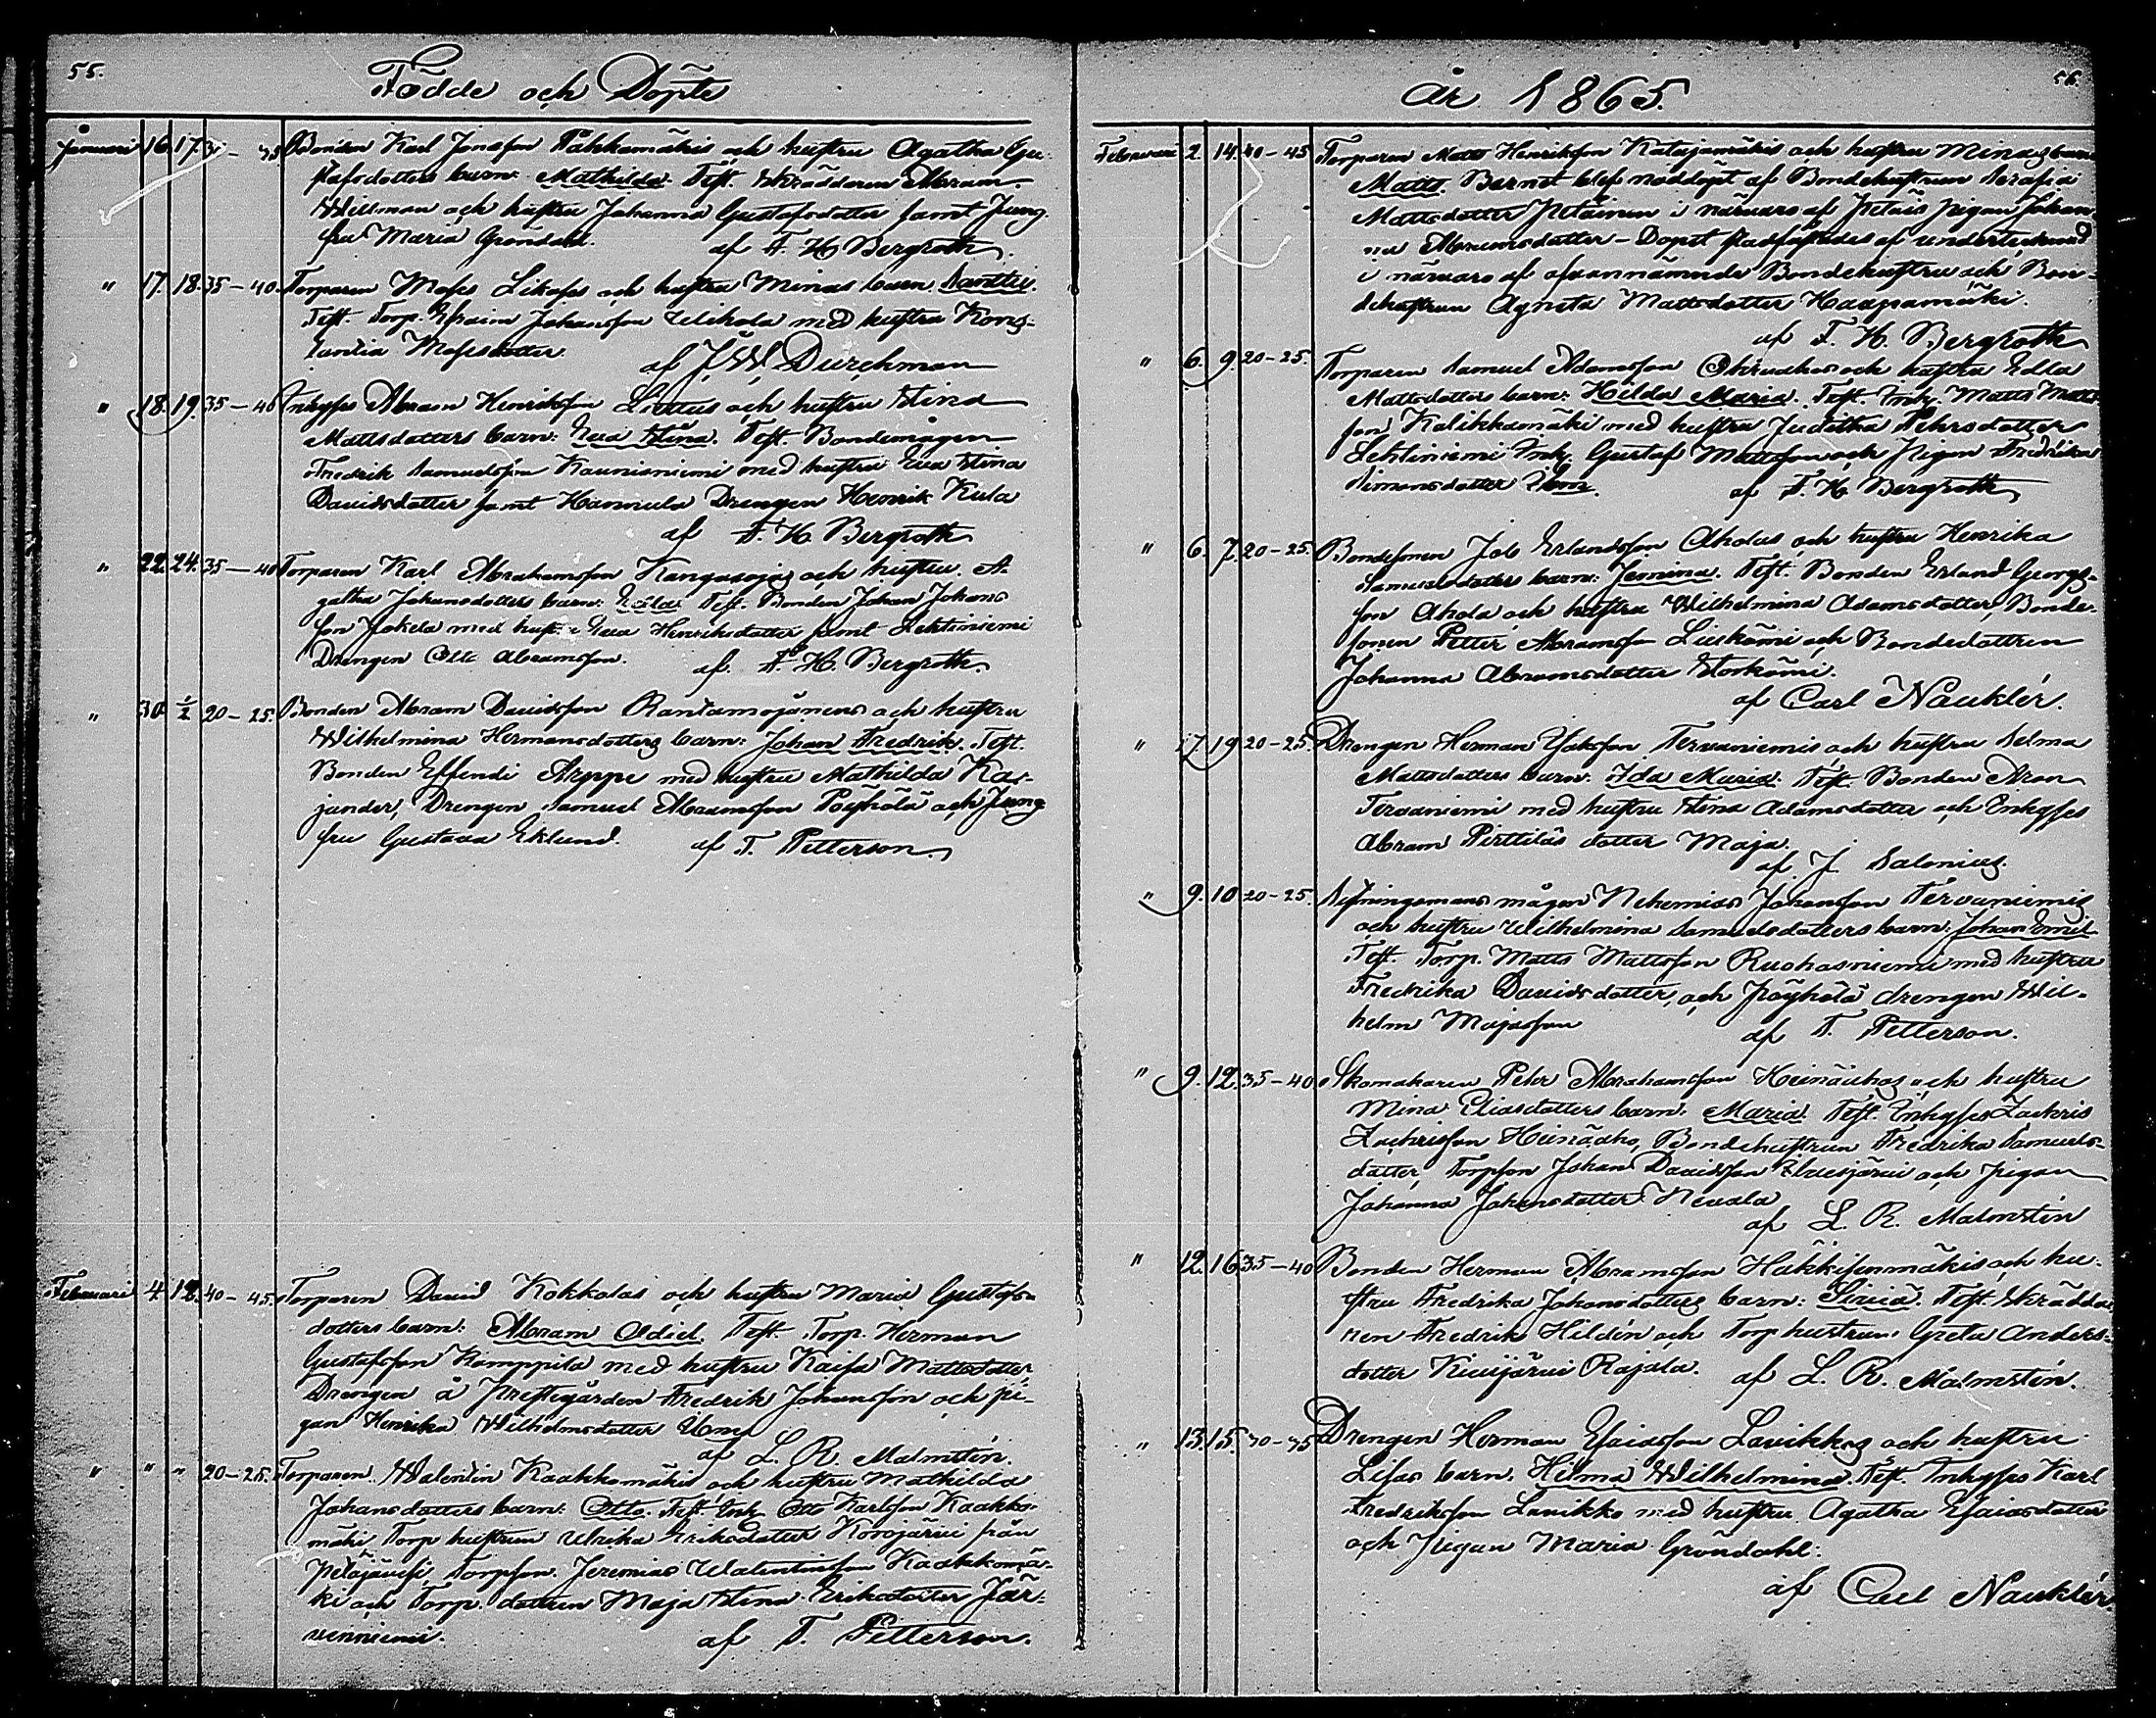 55.
Födde och Döpte
Januari 16. 17. Bonden Karl Jonasson Pahkamäkis och hustru Agatha Gu-
stafsdotters barn: Mathilda. Test. Skräddaren Abram
Willman och hustru Johanna Gustafsdotter samt Jung-
fru Maria Gröndahl. af F. H. Bergroth
" 17. 18. 35-40. Torparen Moses och hustru Minas barn
Test. Torp. Efraim Johansson Ulikola med hustru Kons-
tantia Mosesdotter. af J. W. Durchman
" 18. 19. 35-40 Inhyses Abram Henriksson och hustru Stina
Mattsdotters barn: Eva Stina. Test. Bondemågen
Fredrik Samuelsson Kaunisniemi med hustru Eva Stina
Davidsdotter samt Hannula Drengen Henrik Kula
af F. H. Bergroth
" 22. 24. 35-40 Torparen Karl Abrahamsson Kangasojas och hustru A-
gatha Johansdotters barn: Test. Bonden Johan Johans-
son Jokela med hust. Eva Henriksdotter samt Lehtiniemi
Drengen Otto Abramsson. af F. H. Bergroth
" 30. 1/2 20-25. Bonden Abram Davidsson och hustru
Wilhelmina Hermansdotters barn: Johan Fredrik. Test.
Bonden Effendi Arppe med hustru Mathilda Ka-
jander, Drengen Samuel Abramsson Pöyhölä och Jung-
fru Gustava Eklund. af T. Petterson
Februari 4. 12. 40-45. Torparen David Kokkolas och hustru Maria Gustafs-
dotters barn: Abram Adiel. Test. Torp. Herman
Gustafsson Kamppila med hustru Kaisa Mattsdotter,
Drengen å Prestegården Fredrik Johansson och pi-
gan Henrika Wilhelmsdotter
af L. R. Malmstén.
" " " 20-25. Torparen Walentin Kaakkomäkis och hustru Mathilda
Johansdotters barn: Otto. Test. Inh. Otto Karlsson Kaakko-
mäki, Torp hustrun Ulrika Eriksdotter Korojärvi från
Pelkojänesi, Torpson. Jeremias Walentinsson Kaakkomä-
ki och Torp. dottren Maja Stina Eriksdotter Jär-
venniemi. af T. Petterson.
år 1865.
56.
Februari 2. 14. 40-45 Torparen Matts Henriksson Katajamäkis och hustru Minas barn
Matts. Barnet blef nöddöpt af Bondehustrun Serafia
Mattsdotter i närvaro af pigan Johan-
na Abramsdotter - Dopet stadfästades af undertecknad
i närvaro af ofvannämnde Bondehustru och Bon-
dehustrun Agneta Mattsdotter Haapamäki.
af F. H. Bergroth
" 6. 9. 20-25. Torparen Samuel Adamsson och hustru Edla
Mattsdotters barn: Hilda Maria. Test. Inh. Matts Matts-
son Kalikkamäki med hustru Juditha Pehrsdotter
Lehtiniemi Inh. Gustaf Mattsson och Pigan Fredrika
Simonsdotter af F. H. Bergroth
" 6. 7. 20-25. Bondesonen Job Erlandsson Aholas och hustru Henrika
Samuelsdotters barn: Jemina. Test. Bonden Erland Georgs-
son Ahola och hustru Wilhelmina Adamsdotter, Bonde-
sonen Petter Abramsson Liiskämi och Bondedottren
Johanna Abramsdotter
af Carl Nauklér.
" 17. 19 20-25. Drengen Herman Jaksson Tervaniemis och hustru Selma
Mattsdotters barn: Ida Maria. Test. Bonden Aron
Tervaniemi med hustru Stina Adamsdotter och Inhyses
Abram Pirttiläs dotter Maja.
af J. Salonius.
" 9. 10 20-25. mågen Nehemias Johansson Tervaniemis
och hustru Wilhelmina Samuelsdotters barn: Johan Emil
Test. Torp. Matts Mattsson Ruohoniemi med hustru
Fredrika Davidsdotter, och Pöyhölä drengen Wil-
helm Majasson af T. Petterson.
" 9. 12. 35-40. Skomakaren Pehr Abrahamsson Heinäahos och hustru
Mina Eliasdotters barn. Maria. Test. Inhyses Zachris
Zachrisson Heinäaho, Bondehustrun Fredrika Samuels-
dotter, Torpson Johan Davidsson och pigan
Johanna Johansdotter Nevala
af L. R. Malmstén
" 12. 16. 35-40 Bonden Herman Abramsson Häkkisenmäkis och hu-
stru Fredrika Johansdotters barn: Test. Skrädda-
ren Fredrik Hildén och Torp hustrun Greta Anders-
dotter Kivijärvi Rajala. af L. R. Malmstén.
" 13. 15. Drengen Herman Esaiasson Lavikkas och hustru
Lisas barn. Hilma Wilhelmina. Test. Inhyses Karl
Fredriksson Lavikko med hustru Agatha Esaiasdotter
och Pigan Maria Gröndahl.
af Carl Nauklér.